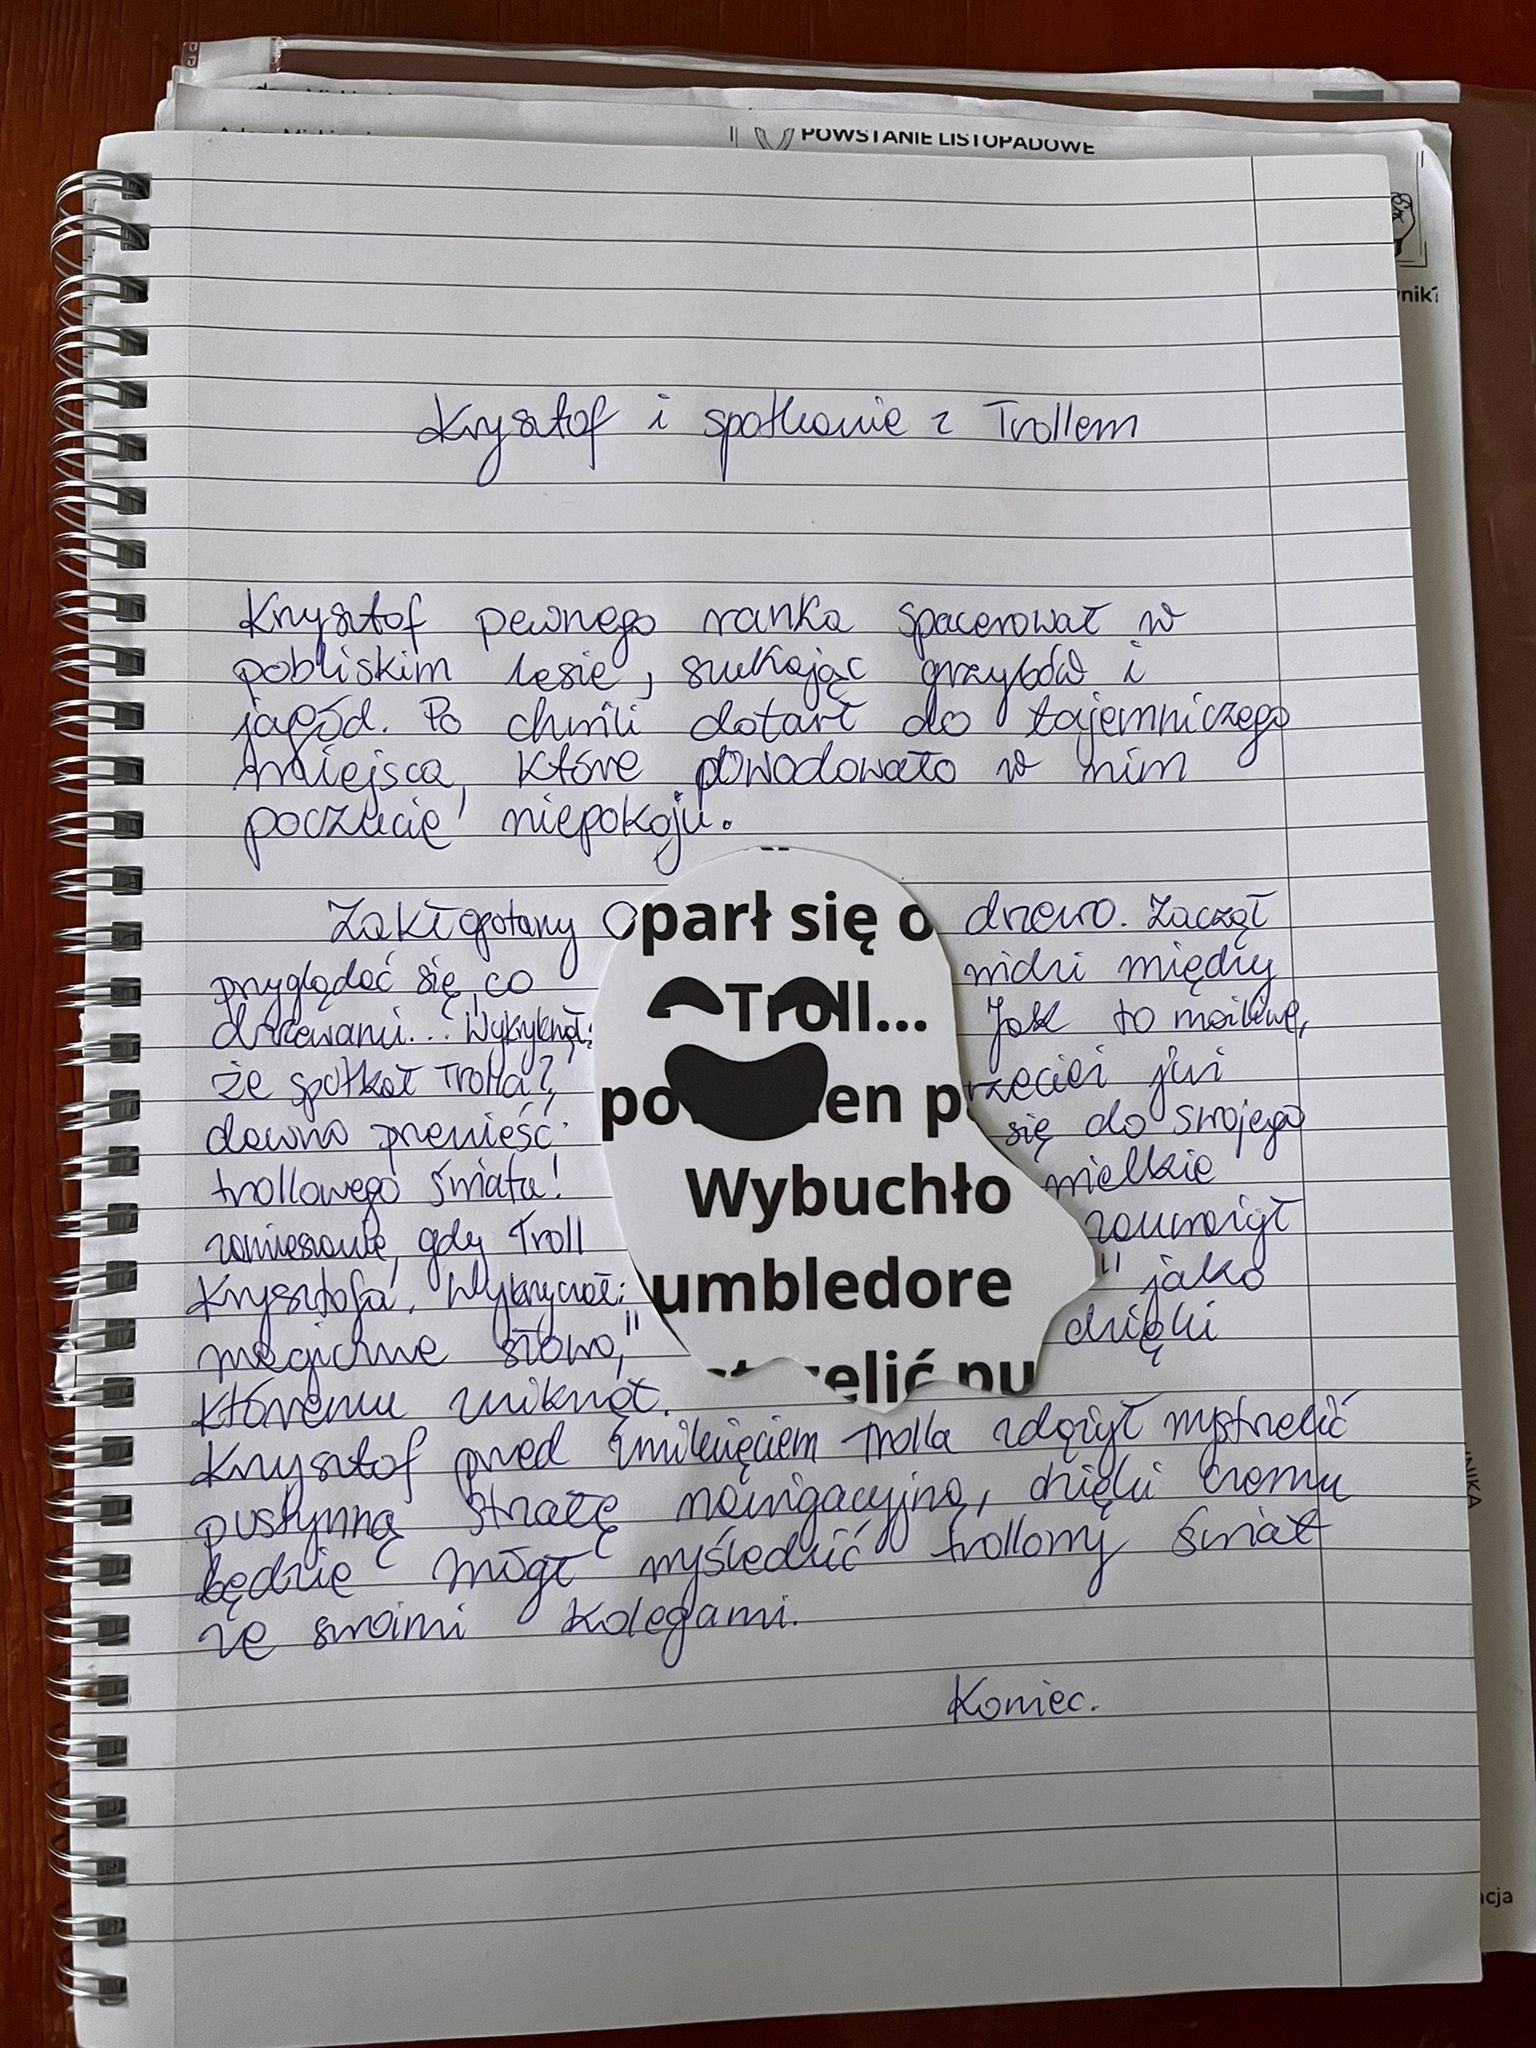 Adam Mickiewicz
POWSTANIE LISTOPADOWE
nik?
Krysztof i spotkanie z Trollem
Krysztof pewnego ranka spacerował w
pobliskim lesie, szukając grzybów i
jagód. Po chwili dotarł do tajemniczego
miejsca, które powodowało w nim
poczucie niepokoju.
Zakłopotany Oparł się o drzewo. Zaczął
przyglądać się, co widzi między
drzewami... Wykryknął: Troll... Jak to możliwe,
że spotkał Trolla? po en przecież już
dawno przenieść się do swojego
trollowego świata! Wybuchło wielkie
zamieszanie, gdy Troll zauważył
Krysztofa. Wykrzyczał: umbledore" jako
magiczne słowo," dzięki
któremu zniknął. elić pu
Krysztof przed zniknięciem Trolla zdążył wystrzelić
pustynną strzałę nawigacyjną, dzięki czemu
będzie mógł wyśledzić trollowy świat
ze swoimi kolegami.
NIKA
Koniec.
cja